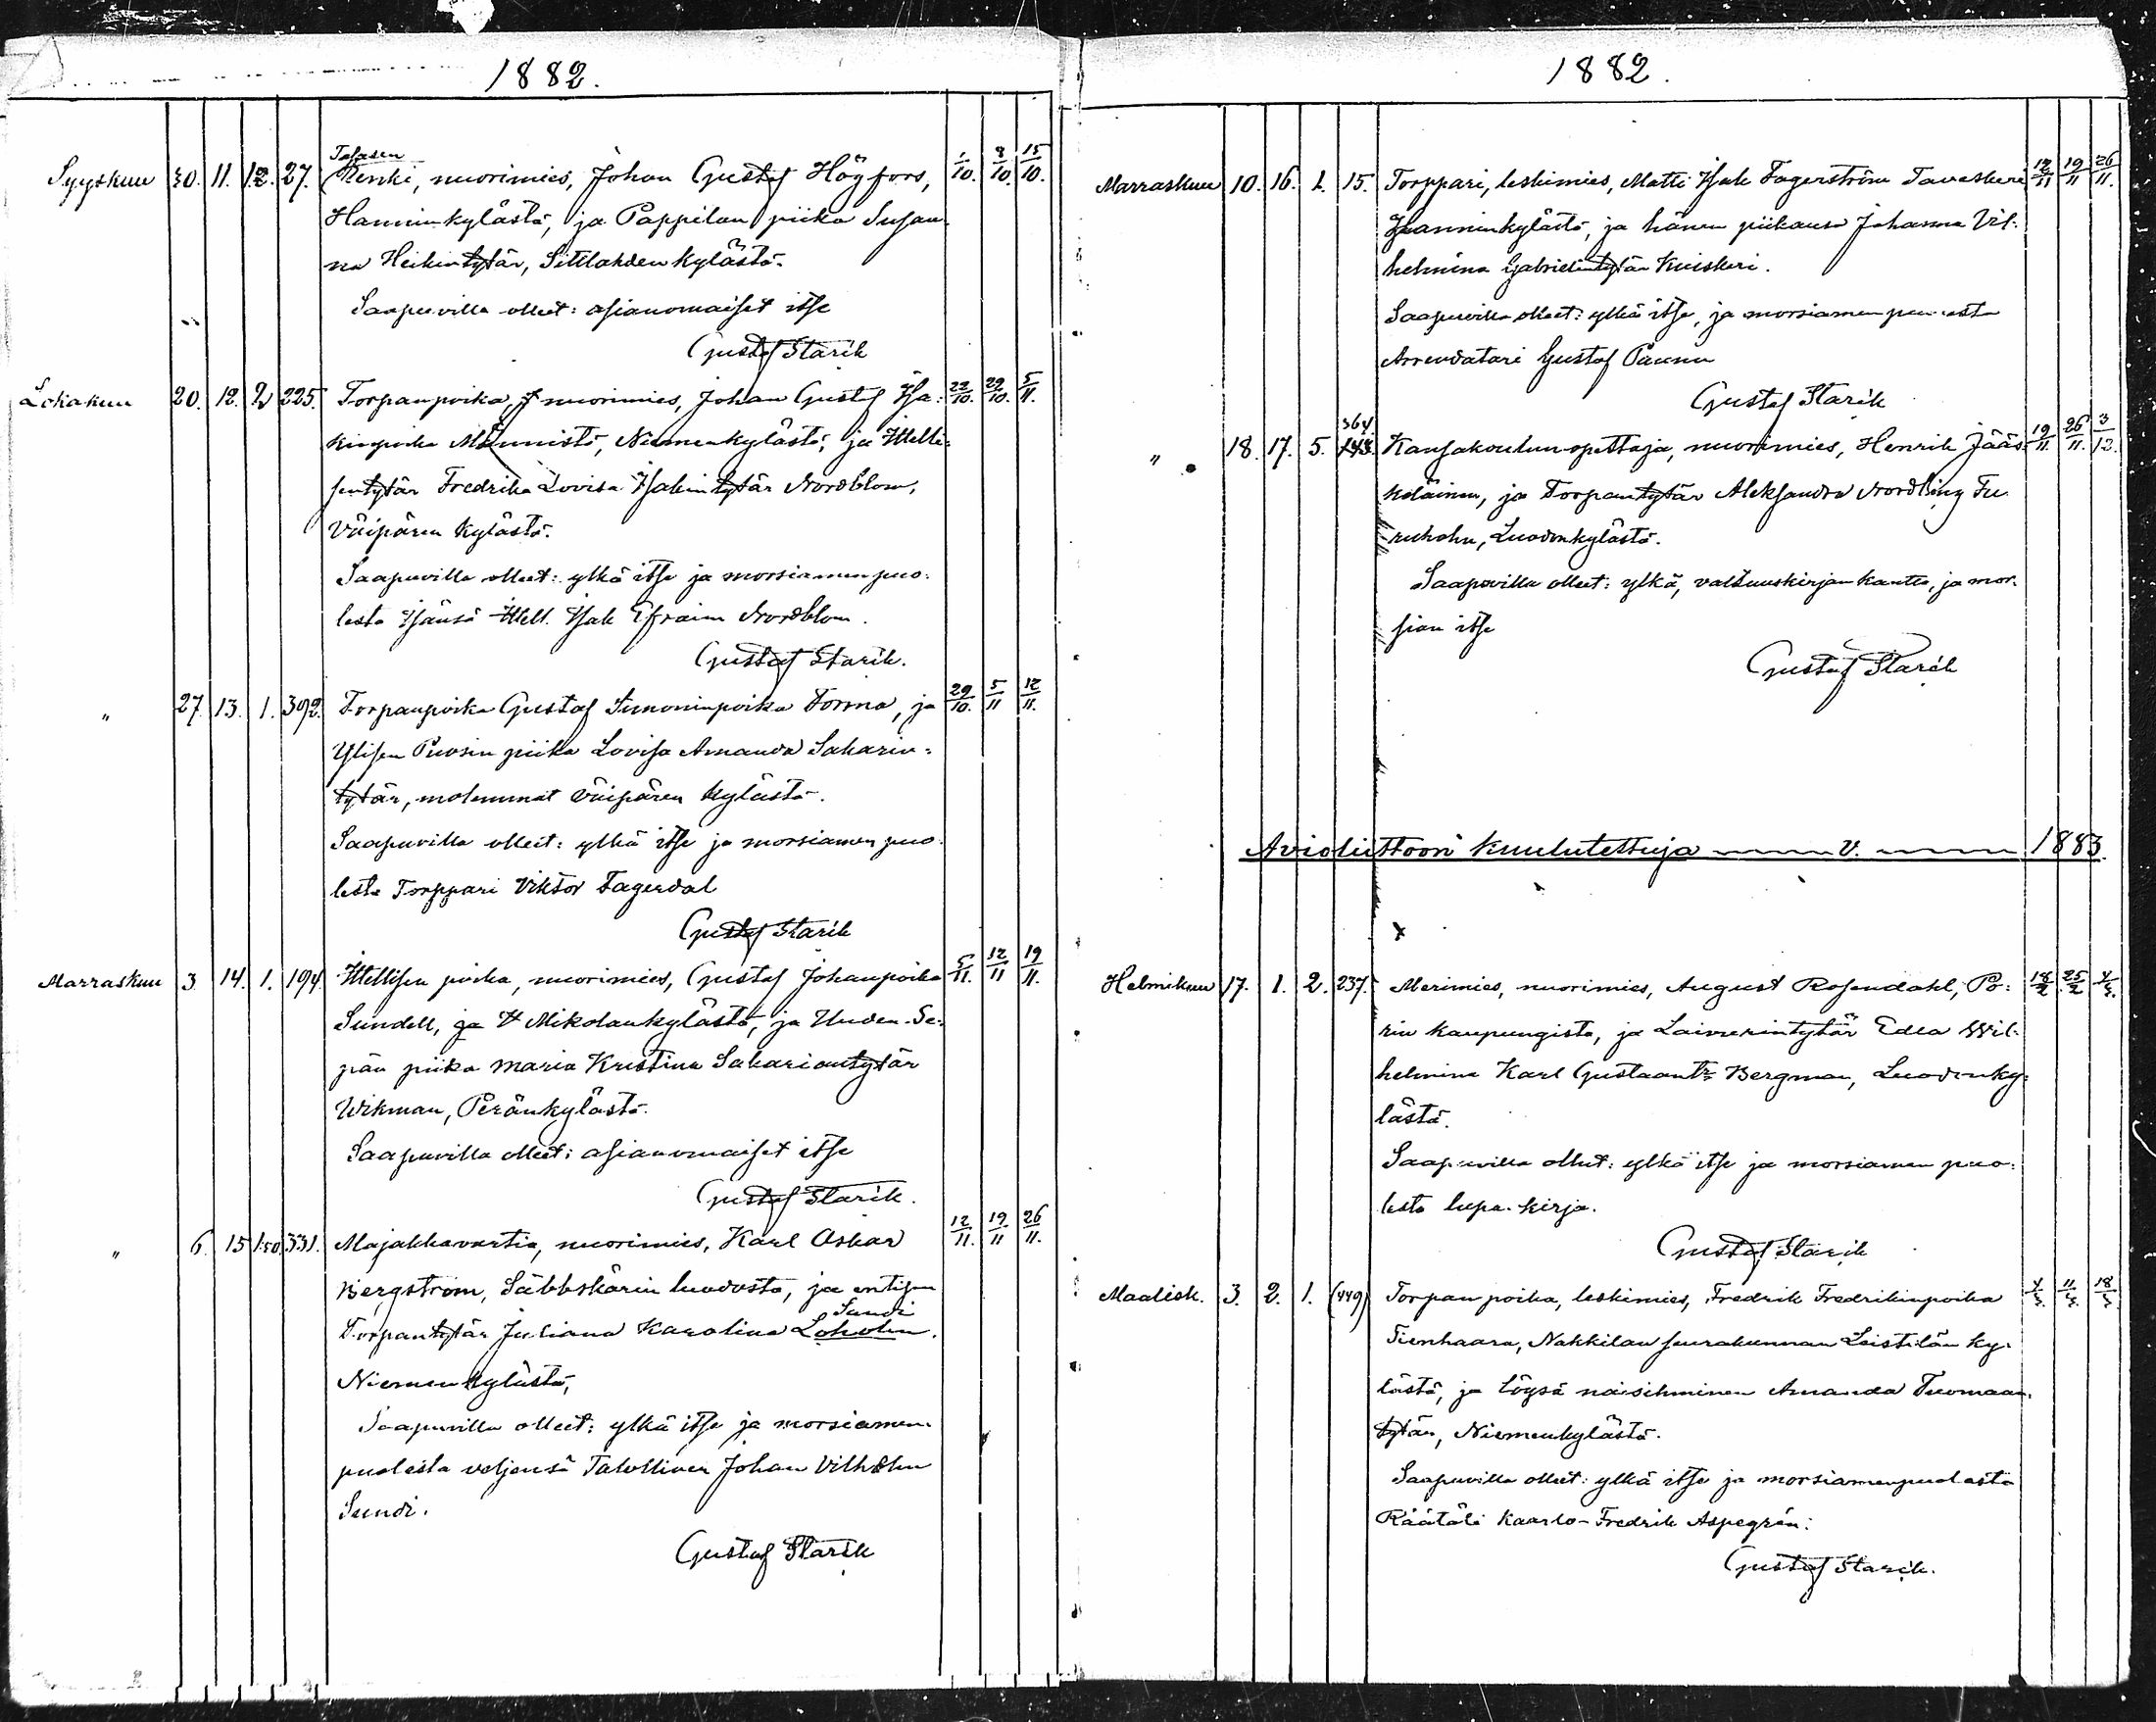 1882.
Syyskuu 30. 11. 12. 27. Talasen
Renki, nuorimies, Johan Gustaf Högfors, 1/10. 8/10. 15/10.
Hanninkylästä, ja Pappilan piika Susan-
na Heikintytär, Sitlahden kylästä.
Saapuvilla olleet: asianomaiset itse
Gustaf Starik
Lokakuu 20. 12. 2 225. Torpanpoika, nuorimies, Johan Gustaf Isa- 22/10. 29/10. 5/11.
kinpoika Männistö, Niemenkylästä, ja Itelli-
sentytär Fredrika Lovisa Isakintytär Nordblom,
Viipären kylästä.
Saapuvilla olleet: ylkä itse ja morsiamen puo-
lesta Isänsä Itell. Isak Efraim Nordblom.
Gustaf Starik.
" 27. 13. 1. 392. Torpanpoika Gustaf Simoninpoika Torma, ja 29/10. 5/11 12/11.
Ylisen Puosin piika Lovisa Amanda Sakarin-
tytär, molemmat Viipären kylästä.
Saapuvilla olleet: ylkä itse ja morsiamen puo-
lesta Torppari Viktor Fagerdal
Gustaf Starik
Marraskuu 3. 14. 1. 194. Itellisen poika, nuorimies, Gustaf Johanpoika 5/11. 12/11 19/11.
Sundell, ja Mikolankylästä, ja Uuden-Se-
pän piika Maria Kristina Sakariantytär
Wikman, Peränkylästä.
Saapuvilla olleet: asianomaiset itse
Gustaf Starik.
" 6. 15 1:50 331. Majakkavartia, nuorimies, Karl Oskar 12/11. 19/11 26/11.
Bergström, Säbbskärin luodosta, ja entisen
Sundi
Torpantytär Juliana Karolina Loholm.
Niemenkylästä,
Saapuvilla olleet: ylkä itse ja morsiamen
puolesta veljensä Talollinen Johan Vilhelm
Sundi.
Gustaf Starik
1882.
Marraskuu 10. 16. 1. 15. Torppari, leskimies, Matti Isak Fagerström Taveskeri 12/11 19/11 26/11.
Hanninkylästä, ja hänen piikansa Johanna Vil-
helmina Gabrielintytär Kuiskeri.
Saapuvilla olleet: ylkä itse, ja morsiamen puolesta
Arrendatari Gustaf Paunu
Gustaf Starik
364
" 18. 17. 5. 143. Kansakoulunopettaja, nuorimies, Henrik Jääs- 19/11. 26/11. 3/12.
keläinen, ja Torpantytär Aleksandra Nordling Fu-
ruholm, Luodonkylästä.
Saapuvilla olleet: ylkä, valtuuskirjan kautta, ja mor-
sian itse
Gustaf Starik
Avioliittoon kuulutettuja v. 1883.
x
Helmikuu 17. 1. 2. 237. Merimies, nuorimies, August Rosendahl, Po- 18/2 25/2 4/3.
rin kaupungista, ja Laivurintytär Edla Wil-
helmina Karl Gustaantr Bergman, Luodonky-
lästä.
Saapuvilla olleet: ylkä itse ja morsiamen puo-
lesta lupa-kirja.
Gustaf Starik
Maalisk. 3. 2. 1. (449) Torpan poika, leskimies, Fredrik Fredrikinpoika 4/3. 11/3. 18/3
Tienhaara, Nakkilan seurakunnan Leistilän ky-
lästä, ja löysä naisihminen Amanda Tuomaan-
tytär, Niemenkylästä.
Saapuvilla olleet: ylkä itse ja morsiamen puolesta
Räätäli Kaarlo-Fredrik Aspegrén.
Gustaf Starik.